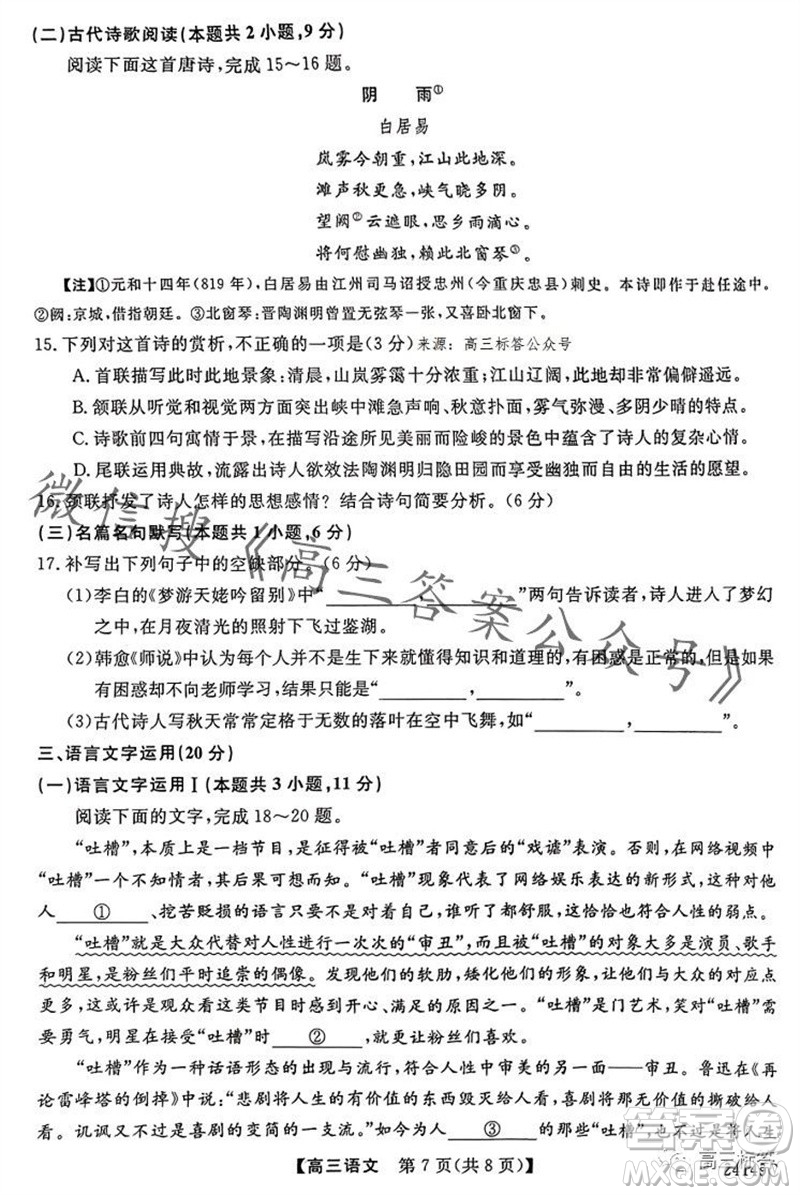 (二)古代诗歌阅读(本题共2小题,9分)
阅读下面这首唐诗,完成15～16题。
阴 雨①
白居易
岚雾今朝重,江山此地深。
滩声秋更急,峡气晓多阴。
望阙②云遮眼,思乡雨滴心。
将何慰幽独,赖此北窗琴③。
【注】①元和十四年(819年),白居易由江州司马诏授忠州(今重庆忠县)刺史。本诗即作于赴任途中。
②阙:京城,借指朝廷。③北窗琴:晋陶渊明曾抚无弦琴一张,又喜卧北窗之下。
15.下列对这首诗的赏析,不正确的一项是(3分)来源:高三标答公众号
A.首联描写此时此地景象:清晨,山岚雾霭十分浓重;江山辽阔,却非常偏僻遥远。
B.颔联从听觉和视觉两方面突出峡中滩急声响、秋意萧索,雾气弥漫、多阴少晴的特点。
C.诗歌前四句寓情于景,在描绘忠州一带美丽而险峻的景色中蕴含了诗人的复杂心情。
D.尾联运用典故,流露出诗人欲效法陶渊明归隐田园而享受幽独而自在的生活的愿望。
16.颈联抒发了诗人怎样的思想感情？结合诗句简要分析。(6分)
(三)名篇名句默写(本题共1小题,6分)
17.补写出下列句子中的空缺部分。(6分)
(1)李白的《梦游天姥吟留别》中“________,________”两句告诉读者,诗人进入了梦幻
之中,在月夜清光的照射下飞过鉴湖。
(2)韩愈《师说》中认为每个人都不是生下来就懂得知识和道理的,有困惑是正常的,但是如果
有困惑却不向老师学习,结果只能是“________,________”。
(3)古代诗人写秋天常常定格于无数的落叶在空中飞舞,如“________,________”。
三、语言文字运用(20分)
(一)语言文字运用Ⅰ(本题共3小题,11分)
阅读下面的文字,完成18～20题。
“吐槽”,本来应该是一档节目,是“吐槽”者同意后的“戏谑”表演。否则,在网络视频中
“吐槽”一个不知情者,其后果是很严重的。“吐槽”现象代表了网络娱乐表达的新形式,一些对他
人 ① 、挖苦贬损的语言流行,谁听了都舒服,这恰恰符合人性的弱点。
“吐槽”就是大众代替对人性进行一次次的“审丑”,而且被“吐槽”的对象大多是演员、歌手
和明星,是粉丝们平时追崇的偶像。发现他们的软肋,矮化他们的形象,让他们与大众的对应点
更多,这个时候的“吐槽”,满足的是观众的好奇心与平衡心。“吐槽”是门艺术,笑对“吐槽”需
要勇气,明星在接受“吐槽”时 ② ,才会让粉丝们喜欢。
“吐槽”作为一种话语形态的出现与流行,符合人性中审美的另一面——审丑。鲁迅在《再
论雷峰塔的倒掉》中说:“悲剧将人生的有价值的东西毁灭给人看,喜剧将那无价值的撕破给人
看。讥讽又不过是喜剧的变简的一支流。”如今,大众对“讽刺”这一喜剧形式喜闻乐见,并喜
【高三语文 第7页(共8页)】
24149C
微信搜《高三答案公众号》
高三标答
答案圈
MXQE.COM